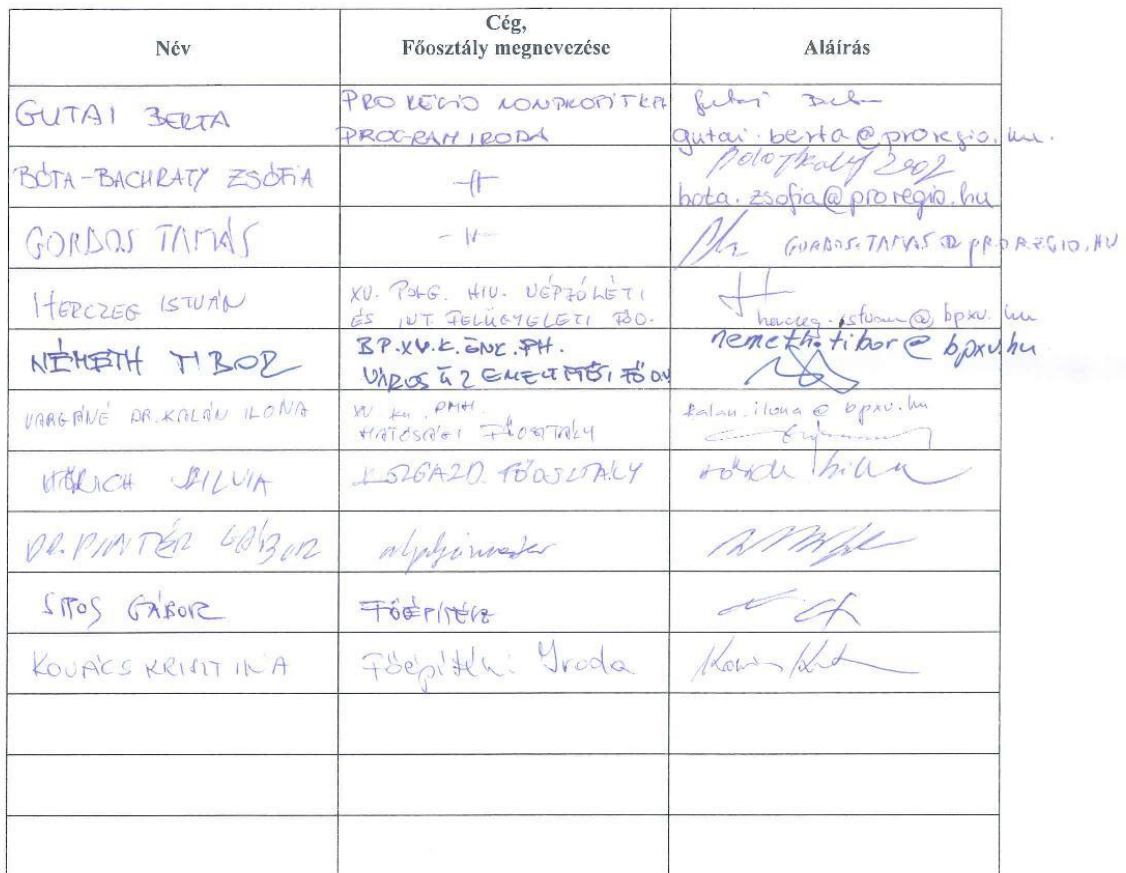 Név
Cég,
Főosztály megnevezése
Aláírás
GUTAI BERTA
PRO RÉGIÓ NONPROFIT KFT
PROGRAM IRODA
gutai.berta@proregio.hu.
BÓTA-BACHRATY ZSÓFIA
-||-
bota.zsofia@proregio.hu
GORDOS TAMÁS
-||-
GORDOS.TAMAS@PROREGIO.HU
HERCZEG ISTVÁN
XV. POLG. HIV. NÉPJÓLÉTI
ÉS INT. FELÜGYELETI FŐO.
herczeg.istvan@bpxv.hu
NÉMETH TIBOR
BP.XV.K.ÖNK.PH.
nemeth.tibor@bpxv.hu
VARGÁNÉ DR. KALÁN ILONA
XV ker. PMH.
HATÓSÁGI FŐOSZTÁLY
kalan.ilona@bpxv.hu
SZILVIA
KÖZGAZD. FŐOSZTÁLY
DR. PINTÉR GÁBOR
alpolgármester
SIPOS GÁBOR
FŐÉPÍTÉSZ
KOVÁCS KRISZTINA
Főépítészi Iroda